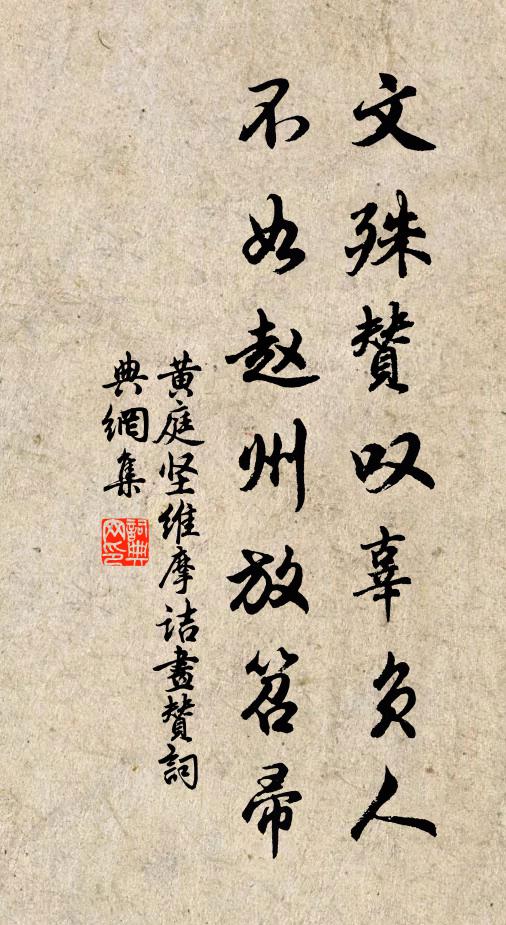 文殊赞叹辜负人
不如赵州放笤帚
黄庭坚维摩诘画赞词
典网集
词典网印